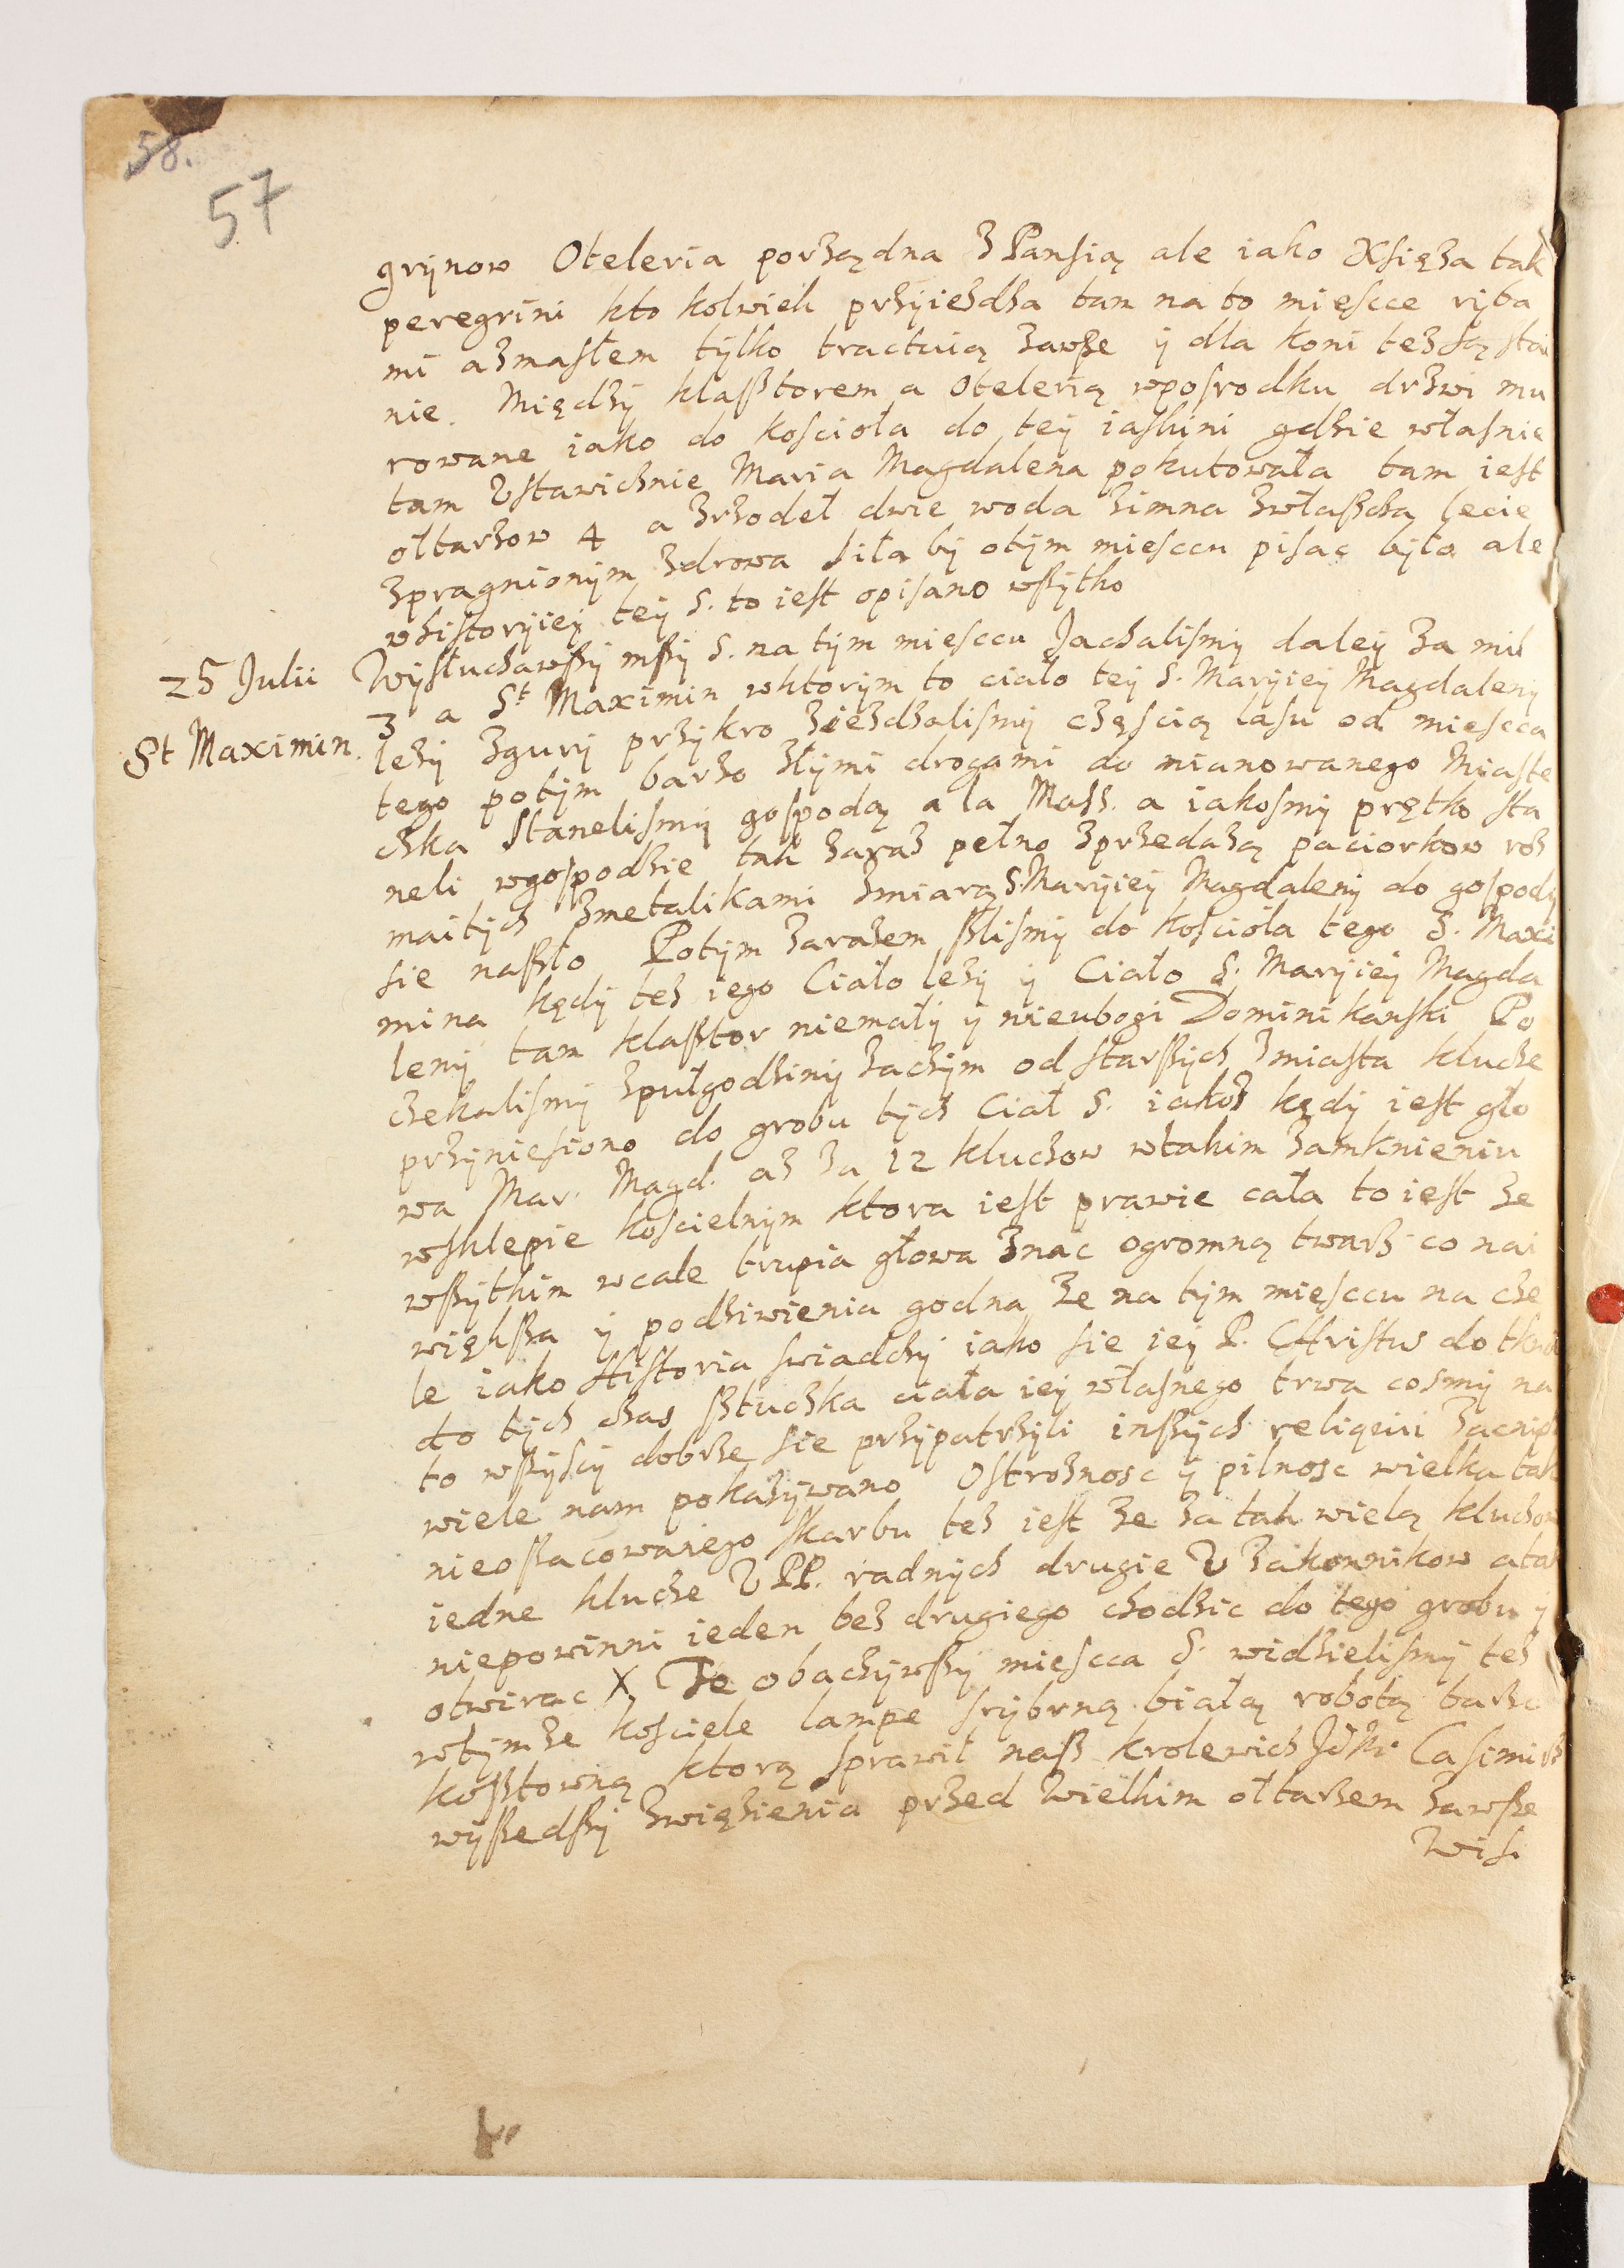 58.
57
grÿnow Oteleria porządna z Pansią ale iako Xsięza tak
peregrini kto kolwiek przÿiezdza tam na to mięscce rÿba
mi azmasłem tÿlko tractuią zawße ÿ dla koni tez są stai
nie. Międzÿ klaßtorem a Otelerią wposrodku drzwi mu
rowane iako do kosciola do teÿ iaskini gdzie własnie
tam Vstawicznie Maria Magdalena pokutowała tam iest
ołtarzow 4 a zrzodeł dwie woda zimna zwłaßcza lecie
zpragnionÿm zdrowa siła bÿ otÿm miesccu pisac bÿło ale
whistorÿieÿ teÿ S. to iest opisano wßÿtko
25 Julii Wÿsłuchawßÿ mßÿ S. na tÿm miesccu Jachalismÿ daleÿ za mil
3 a St Maximin wktorÿm to ciało teÿ S. Marÿieÿ Magdalenÿ
St Maximin. lezÿ zgurÿ przÿkro ziezdzalismÿ częscią lasu od miescca
tego potÿm barzo złÿmi drogami do mianowanego Miaste
czka Stanelismÿ gospodą a la Mass. a iakosmÿ prętko sta
neli wgospodzie tak zaraz pełno zprzedazą paciorkow roz
maitÿch zmetalikami zmiarą S. Marÿieÿ Magdalenÿ do gospodÿ
sie naßło Potÿm zarazem ßlismÿ do kosciola tego S. Maxi
mina kędÿ tez iego Ciało lezÿ ÿ Ciało S. Marÿieÿ Magda
lenÿ tam klaßtor niemałÿ ÿ nieubogi Dominikanski Po
czekalismÿ zpułgodzinÿ zaczÿm od starßÿch zmiasta klucze
przÿniesiono do grobu tÿch Ciał S. iakoz kędÿ iest gło
wa Mar. Magd. az za 12 kluczow wtakim zamknieniu
wsklepie koscielnÿm ktora iest prawie cała to iest ze
wßÿtkim wcale trupia głowa znac ogromną twarz co nai
więkßa ÿ podziwienia godna ze na tÿm miesccu na cze
le iako Historia swiadczÿ iako sie ieÿ P. CHristus dotknął
do tÿch czas ßtuczka ciała ieÿ własnego trwa cosmÿ na
to wßÿscÿ dobrze sie przÿpatrzÿli inßÿch reliquii zacnÿch
wiele nam pokazÿwano Ostroznosc ÿ pilnosc wielka tak
nieoßacowanego skarbu tez iest ze za tak wielą kluczow
iedne klucze V PP. radnÿch drugie V zakonnikow a tak
niepowinni ieden bez drugiego chodzic do tego grobu ÿ
otwirac X Te obaczÿwßÿ miescca S. widzielismÿ tez
wtÿmze kosciele lampe srÿbrną białą robotą barzo
koßtowną ktorą sprawił naß krolewicz Casimirz
wÿßedßÿ zwięzienia przed Wielkim ołtarzem zawße
Wisi